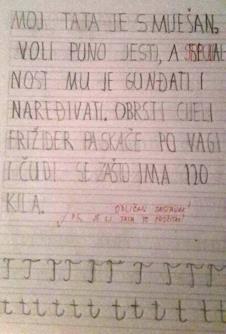 MOJ TATA JE SMIJEŠAN.
VOLI PUNO JESTI, A SPECIJAL
NOST MU JE GUNĐATI I
NAREĐIVATI. OBRSTI CIJELI
FRIŽIDER PA SKAČE PO VAGI
I ČUDI SE ZAŠTO IMA 120
KILA.
ODLIČAN SASTAVAK!
P.S. JE LI TATA TO PROČITAO?
T T T T T T T T
t t t t t t t t